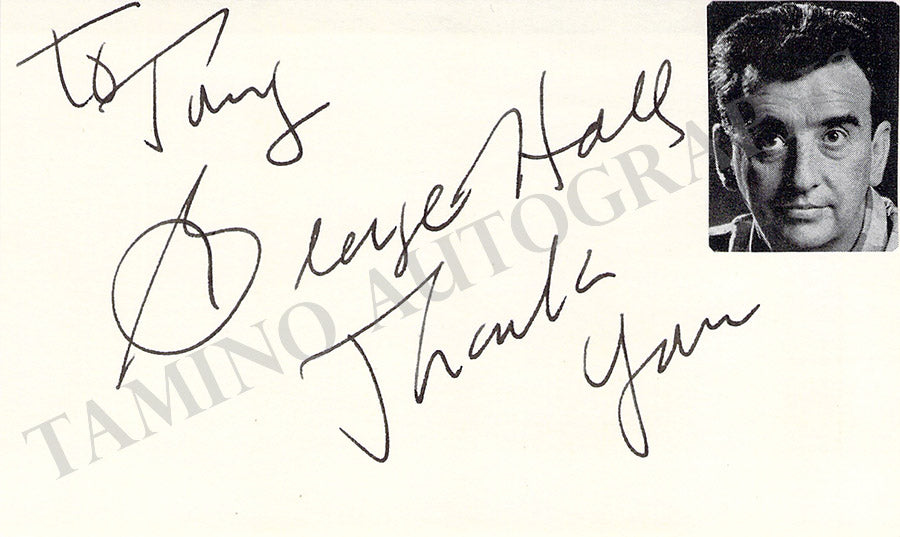 to Tony
George Hall
Thank
You
TAMINO AUTOGRAP